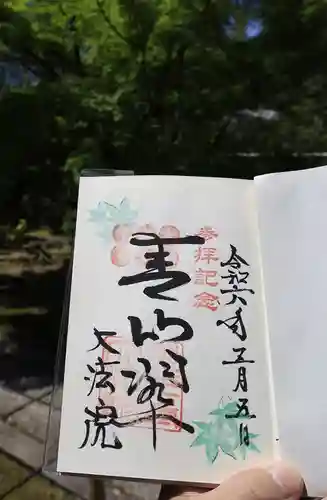 令和六年五月五日
参拝記念
青山翠
大法院